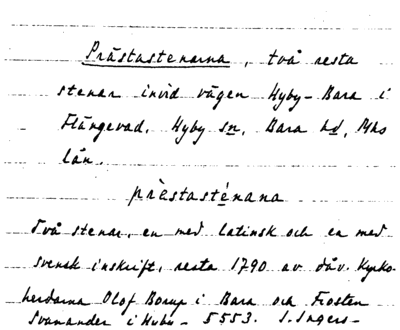 Prästastenarna, två resta
stenar invid vägen Hyby-Bara i
Flängevad. Hyby sn, Bara hd, Mhs
län.
prèstasténana
Två stenar, en med latinsk och en med
svensk inskrift, resta 1790 av dåv. Kyrko-
herdarna Olof Borup i Bara och Trosten
Svanander i Hyby - 5553. S. Ingers-